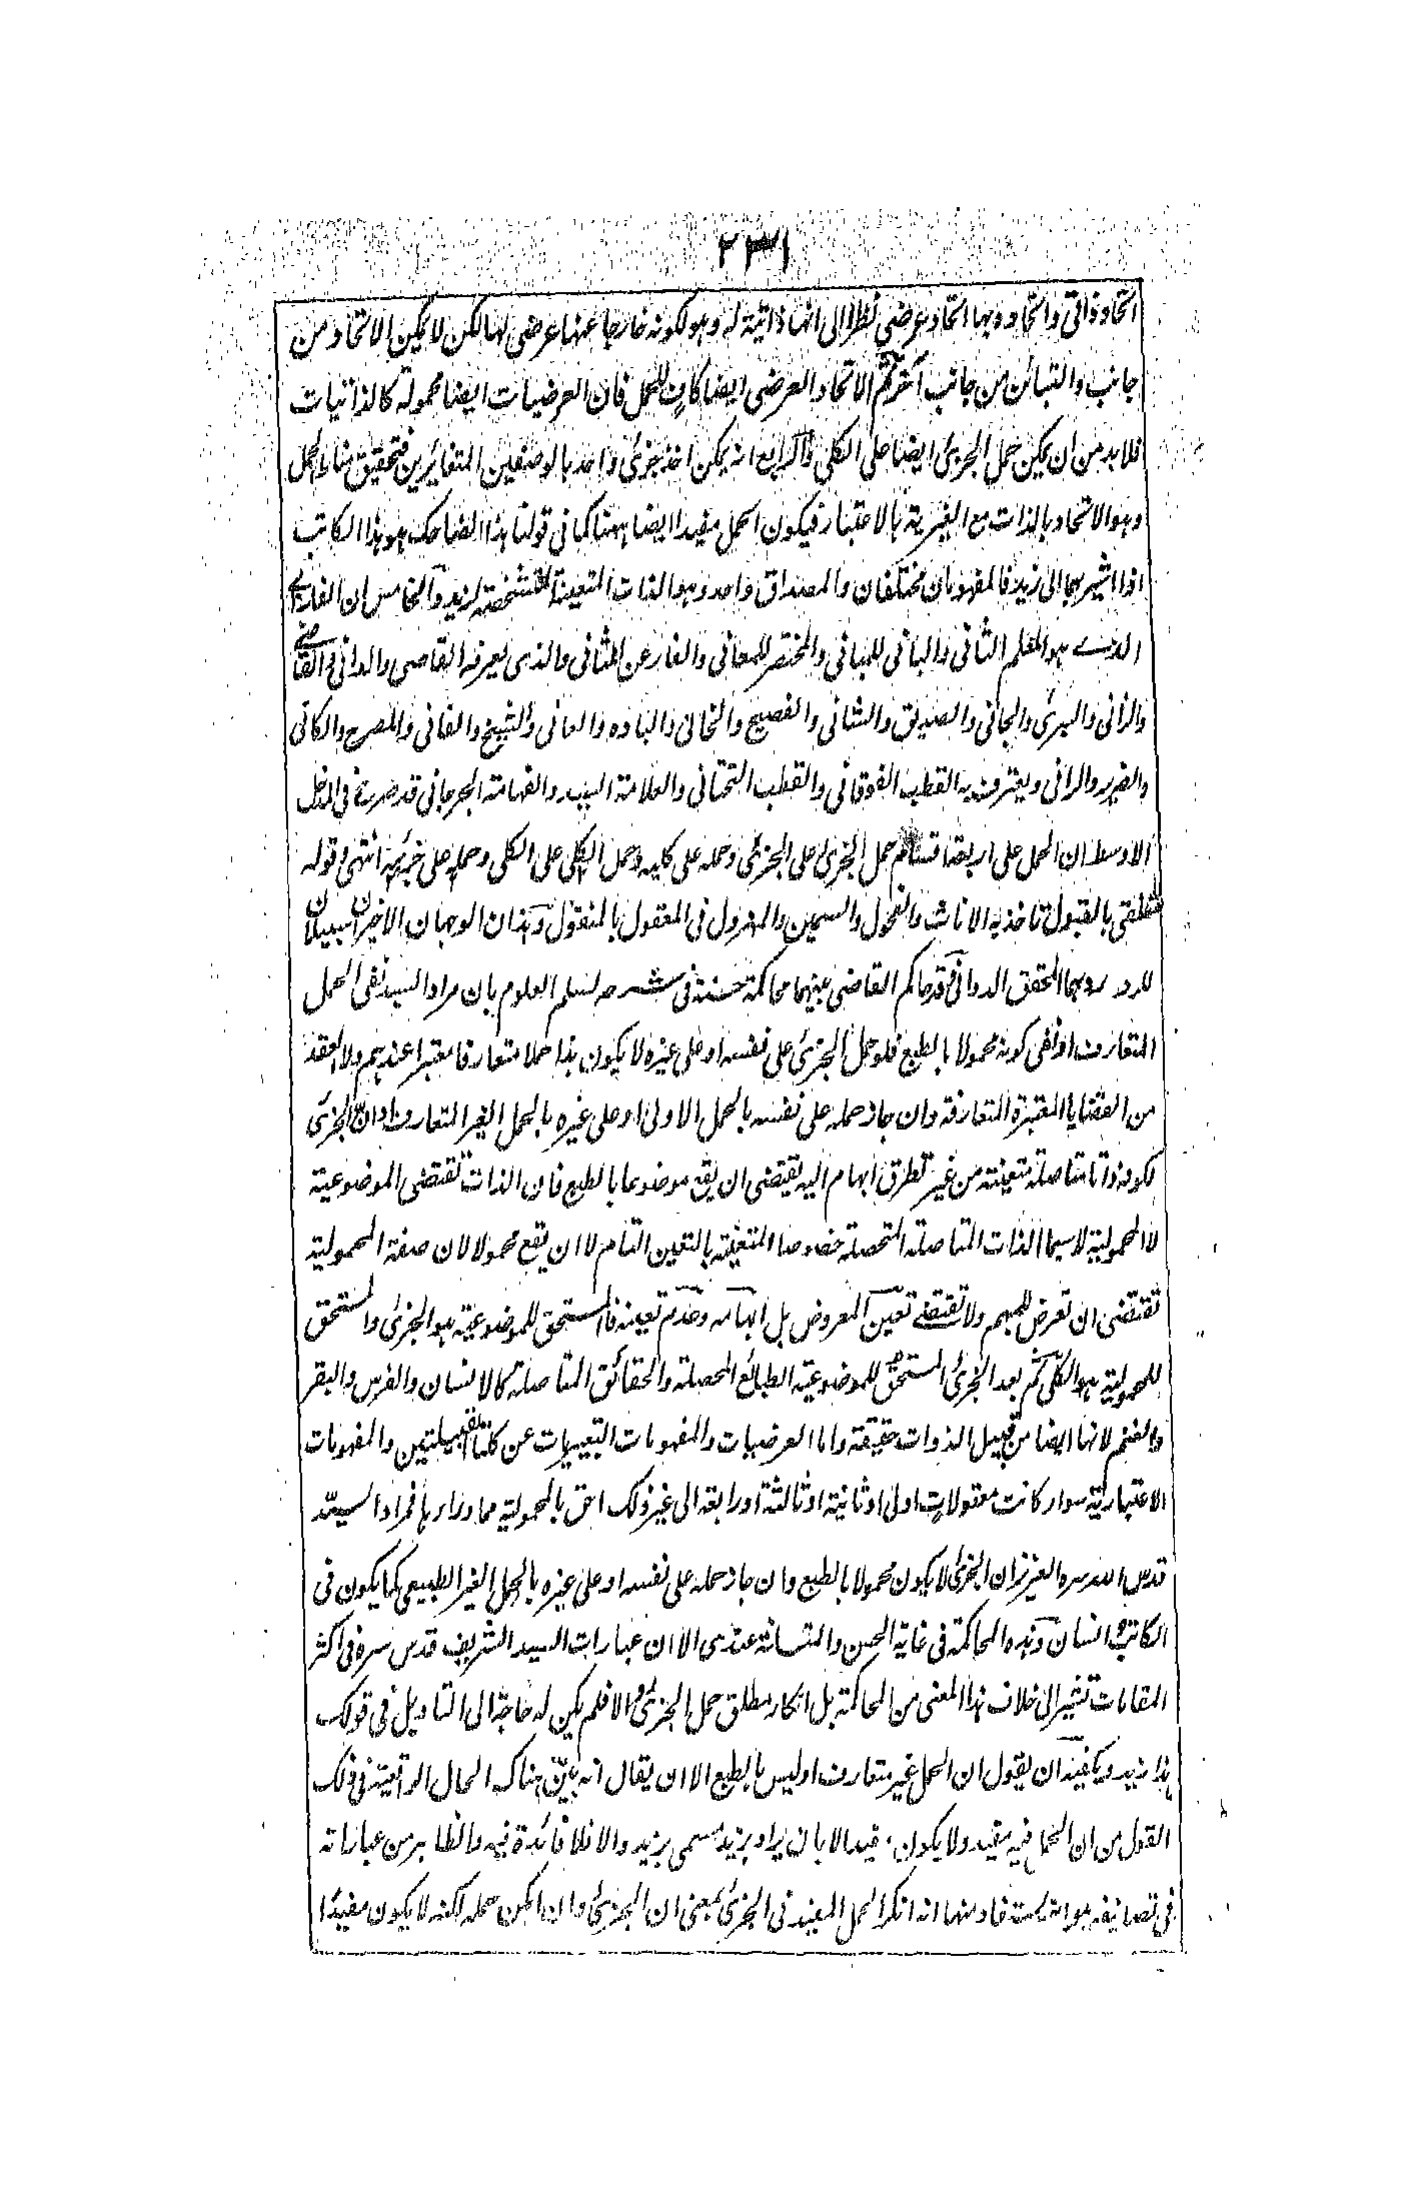 ٢٣١
اتحاد ذاتی واتحاده بها اتحاد عرضی نظرا الی انها ذاتیة له وهو لکونه خارجا عنها عرضی لها لکن لا یمکن الاتحاد من
جانب والتبائن من جانب آخر ثم الاتحاد العرضی ایضا کاف للحمل فان العرضیات ایضا محمولة کالذاتیات
فلابد من ان یمکن حمل الجزئی ایضا علی الکلی والرابع انه یمکن اخذ جزئی واحد بالوصفین المتغائرین فتحقق مناط الحمل
وهو الاتحاد بالذات مع الغیریة بالاعتبار فیکون الحمل مفیدا ایضا ههنا کما فی قولنا هذا الضاحک هو هذا الکاتب
اذا اشیر بهما الی زید فالمفهومان مختلفان والمصداق واحد وهو الذات المتعینة المتشخصة لزید والخامس ان الفارابی
الذی هو المعلم الثانی والبانی للمبانی والمختصر للمعانی والفار عن المثانی والذی یعرفه القاصی والدانی والقاضی
والزانی والبری والجانی والصدیق والشانی والفصیح والخانی والباده والعانی والشیخ والفانی والمصرح والکانی
والضریر والرانی ویعترف به القطب الفوقانی والقطب التحتانی والعلامة السید والفهامة الجرجانی قد صرح فی المدخل
الاوسط ان الحمل علی اربعة اقسام حمل الجزئی علی الجزئی وحمله علی کلیه وحمل الکلی علی الکلی وحمله علی جزئیه انتهی وقوله
متلقی بالقبول تاخذ به الاناث والفحول والسمین والمهزول فی المعقول بالمنقول وهذان الوجهان الاخیران سبیلان
للرد ردبهما المحقق الدوانی وقد حاکم القاضی بینهما محاکمة حسنة فی شرحه لسلم العلوم بان مراد السید نفی الحمل
المتعارف او نفی کونه محمولا بالطبع فلو حمل الجزئی علی نفسه او علی غیره لا یکون هذا حملا متعارفا معتبرا عندهم ولا العقد
من القضایا المعتبرة المتعارفة وان جاز حمله علی نفسه بالحمل الاولی او علی غیره بالحمل الغیر المتعارف او ان الجزئی
لکونه ذاتا متاصلة متعینة من غیر تطرق ابهام الیه یقتضی ان یقع موضوعا بالطبع فان الذات تقتضی الموضوعیة
لا المحمولیة لاسیما الذات المتاصلة المتحصلة خصوصا المتعینة بالتعین التام لا ان یقع محمولا لان صفة المحمولیة
تقتضی ان تعرض للمبهم ولا تقتضی تعین المعروض بل ابهامه وعدم تعینه فالمستحق للموضوعیة هو الجزئی والمستحق
للمحمولیة هو الکلی ثم بعد الجزئی المستحق للموضوعیة الطبائع المحصلة والحقائق المتاصلة کالانسان والفرس والبقر
والغنم لانها ایضا من قبیل الذوات حقیقة واما العرضیات والمفهومات التعبیرات عن کلتا القبیلتین والمفهومات
الاعتباریة سواء کانت معقولات اولی او ثانیة او ثالثة او رابعة الی غیر ذلک احق بالمحمولیة مما وراءها فمراد السید
قدس الله سره العزیز ان الجزئی لا یکون محمولا بالطبع وان جاز حمله علی نفسه او علی غیره بالحمل الغیر الطبیعی کما یکون فی
الکاتب انسان وهذه المحاکمة فی غایة الحسن والمتانة عندی الا ان عبارات السید الشریف قدس سره فی اکثر
المقامات تشیر الی خلاف هذا المعنی من المحاکمة بل انکار مطلق حمل الجزئی والا فلم یکن له حاجة الی التاویل فی قولک
هذا زید ویکفیه ان یقول ان الحمل غیر متعارف او لیس بالطبع الا ان یقال انه بین هناک الحال الواقعیة فی ذلک
القول من ان الحمل فیه مفید ولا یکون مفیدا الا بان یراد بزید مسمی بزید والا فلا فائدة فیه والظاهر من عباراته
فی تصانیفه هو انه انکر الحمل المفید فی الجزئی بمعنی ان الجزئی وان امکن حمله لکنه لا یکون مفیدا